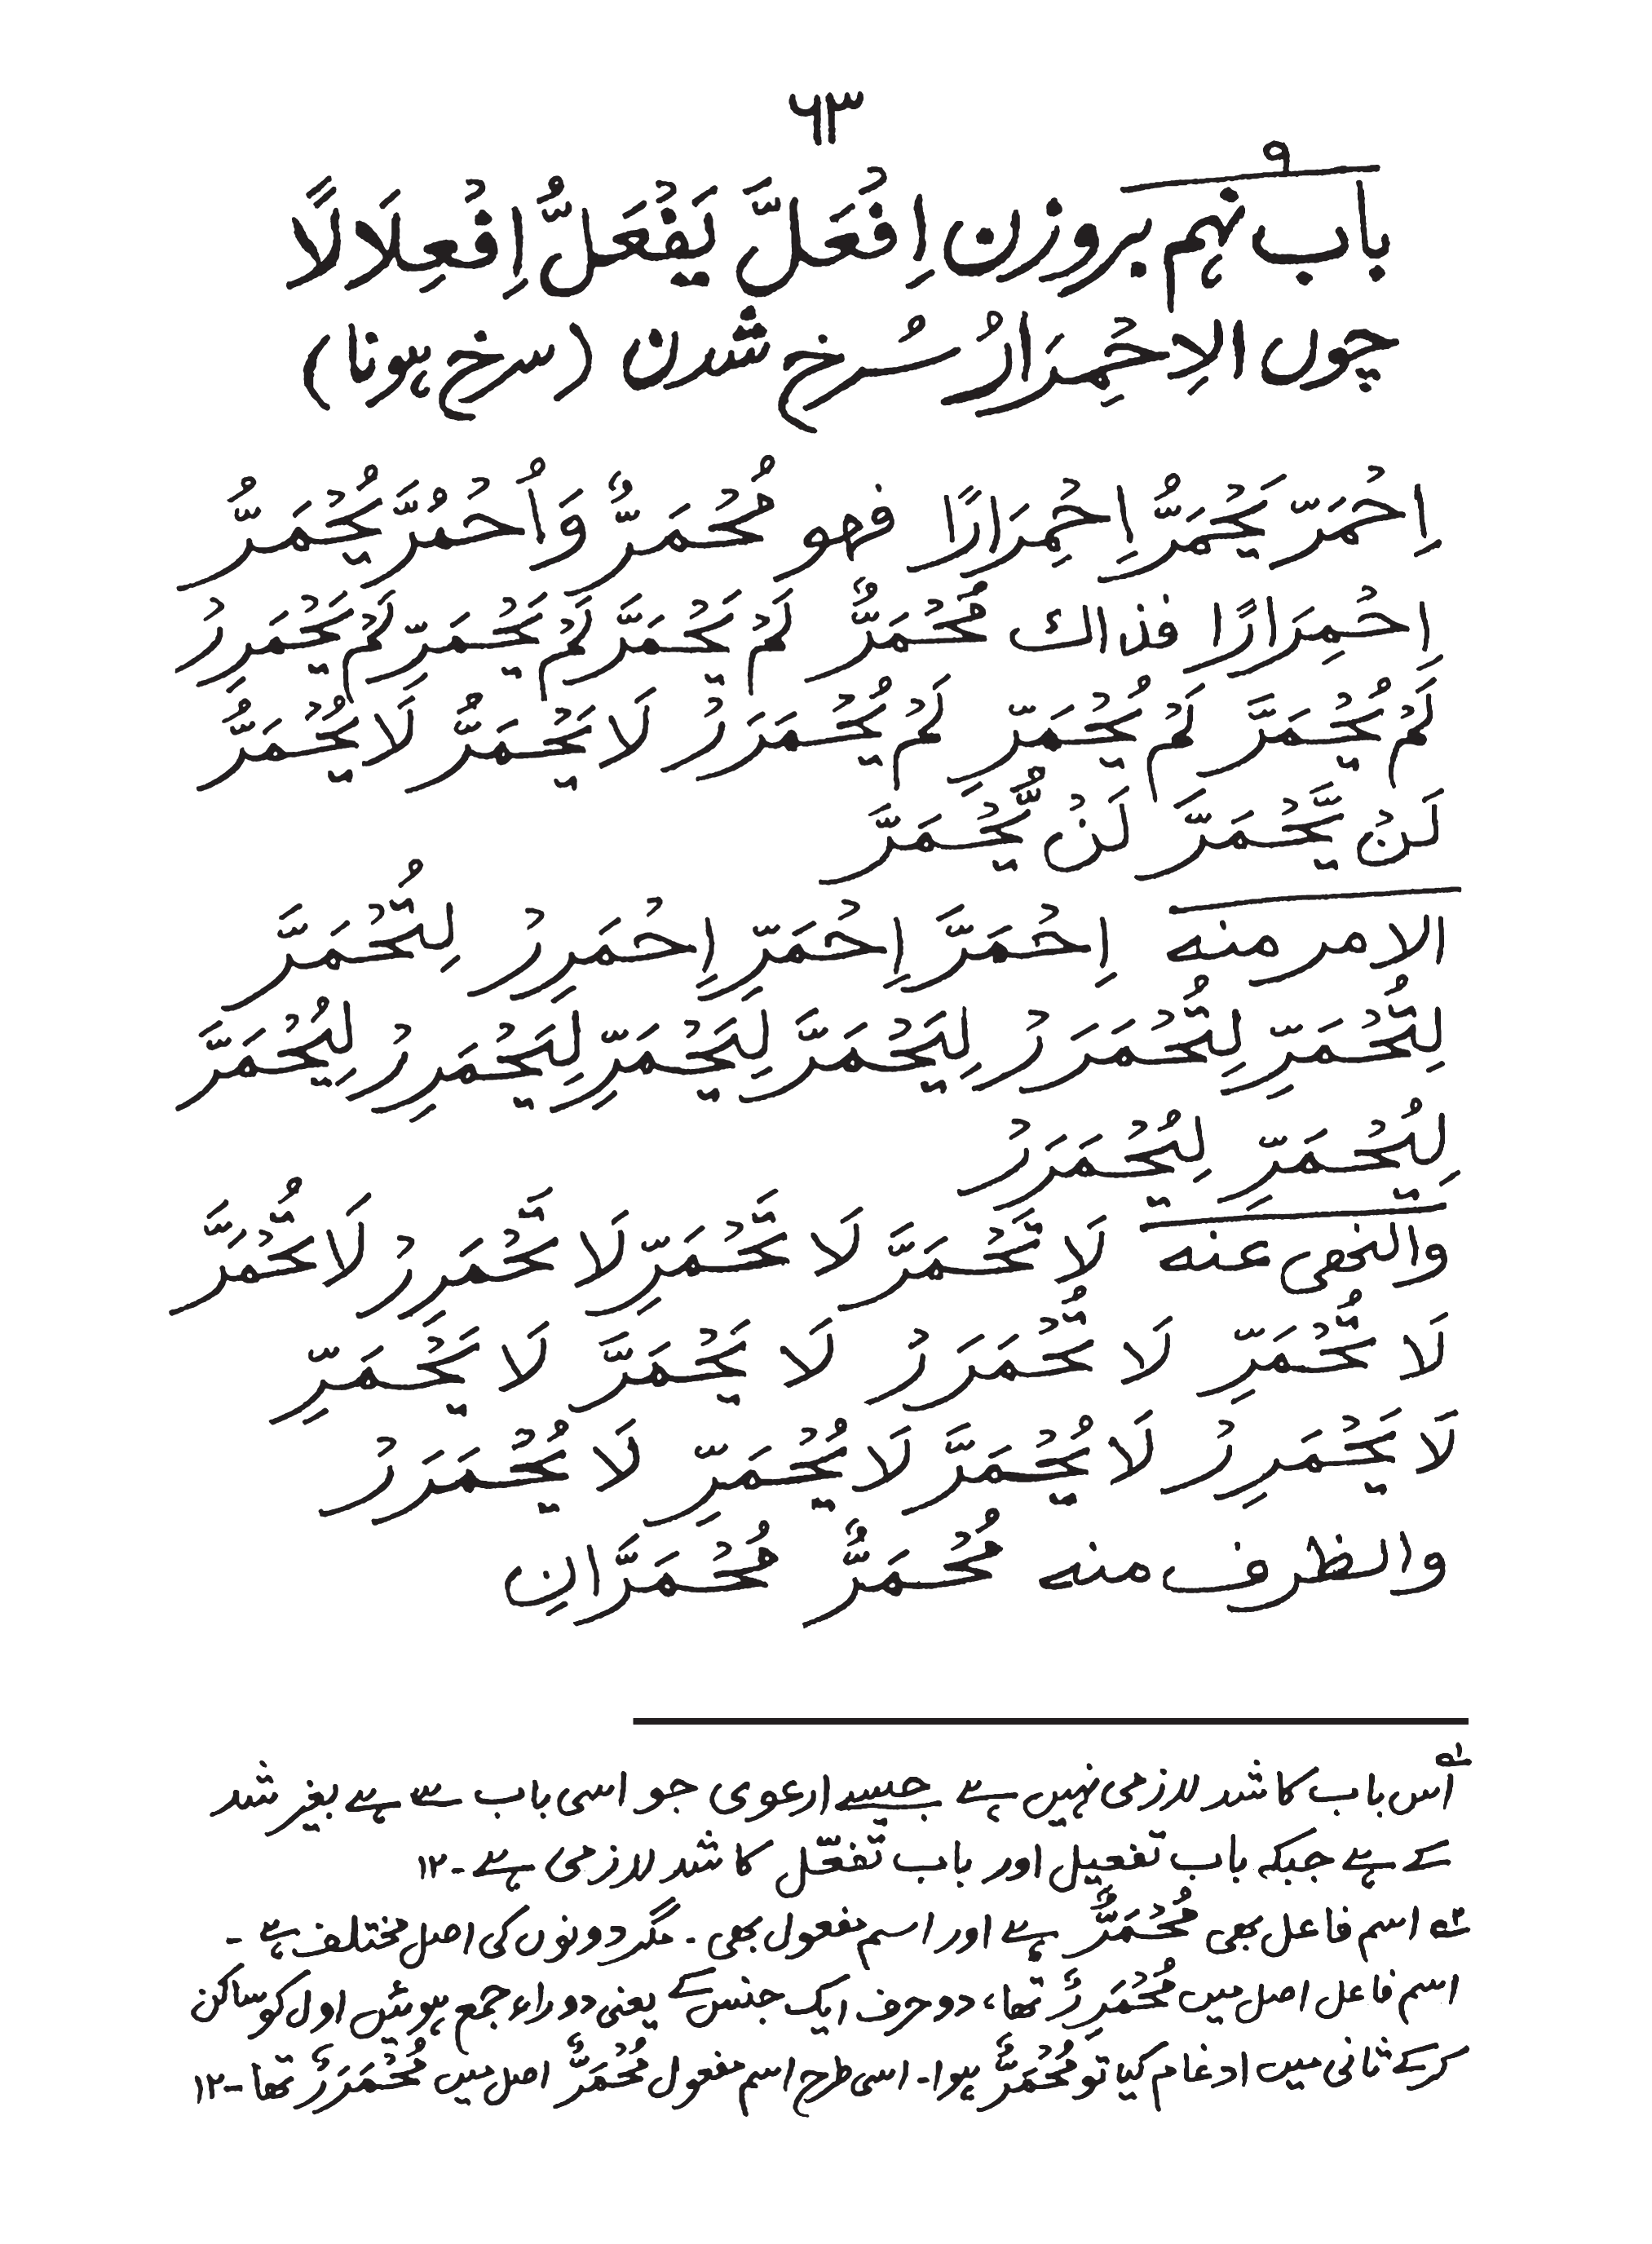 ٦٣
٩
باب نہم بروزن اِفْعَلَّ يَفْعَلُّ اِفْعِلَالًا
چوں الاِحْمِرَارُ سُرخ شدن (سرخ ہونا)
اِحْمَرَّ يَحْمَرُّ اِحْمِرَارًا فهو مُحْمَرٌّ وَاُحْمُرَّ يُحْمَرُّ
اِحْمِرَارًا فذاك مُحْمَرٌّ لَمْ يَحْمَرَّ لَمْ يَحْمَرِّ لَمْ يَحْمَرِرْ
لَمْ يُحْمَرَّ لَمْ يُحْمَرِّ لَمْ يُحْمَرَرْ لَا يَحْمَرُّ لَا يُحْمَرُّ
لَنْ يَّحْمَرَّ لَنْ يُّحْمَرَّ
الامر منه اِحْمَرَّ اِحْمَرِّ اِحْمَرِرْ لِتُحْمَرَّ
لِتُحْمَرِّ لِتُحْمَرَرْ لِيَحْمَرَّ لِيَحْمَرِّ لِيَحْمَرِرْ لِيُحْمَرَّ
لِيُحْمَرِّ لِيُحْمَرَرْ
والنهى عنه لَا تَحْمَرَّ لَا تَحْمَرِّ لَا تَحْمَرِرْ لَا تُحْمَرَّ
لَا تُحْمَرِّ لَا تُحْمَرَرْ لَا يَحْمَرَّ لَا يَحْمَرِّ
لَا يَحْمَرِرْ لَا يُحْمَرَّ لَا يُحْمَرِّ لَا يُحْمَرَرْ
والظرف منه مُحْمَرٌّ مُحْمَرَّانِ
؎۱ اس باب کا شد لازمی نہیں ہے جیسے ارعوی جو اسی باب سے ہے بغیر شد
کے ہے جبکہ باب تفعیل اور باب تفعّل کا شد لازمی ہے ۔ ۱۲
؎۲ اسم فاعل بھی مُحْمَرٌّ ہے اور اسم مفعول بھی ۔ مگر دونوں کی اصل مختلف ہے ۔
اسم فاعل اصل میں مُحْمَرِرٌ تھا، دو حرف ایک جنس کے یعنی دو راء جمع ہوئیں اول کو ساکن
کرکے ثانی میں ادغام کیا تو مُحْمَرٌّ ہوا۔ اسی طرح اسم مفعول مُحْمَرٌّ اصل میں مُحْمَرَرٌ تھا ۔ ۱۲